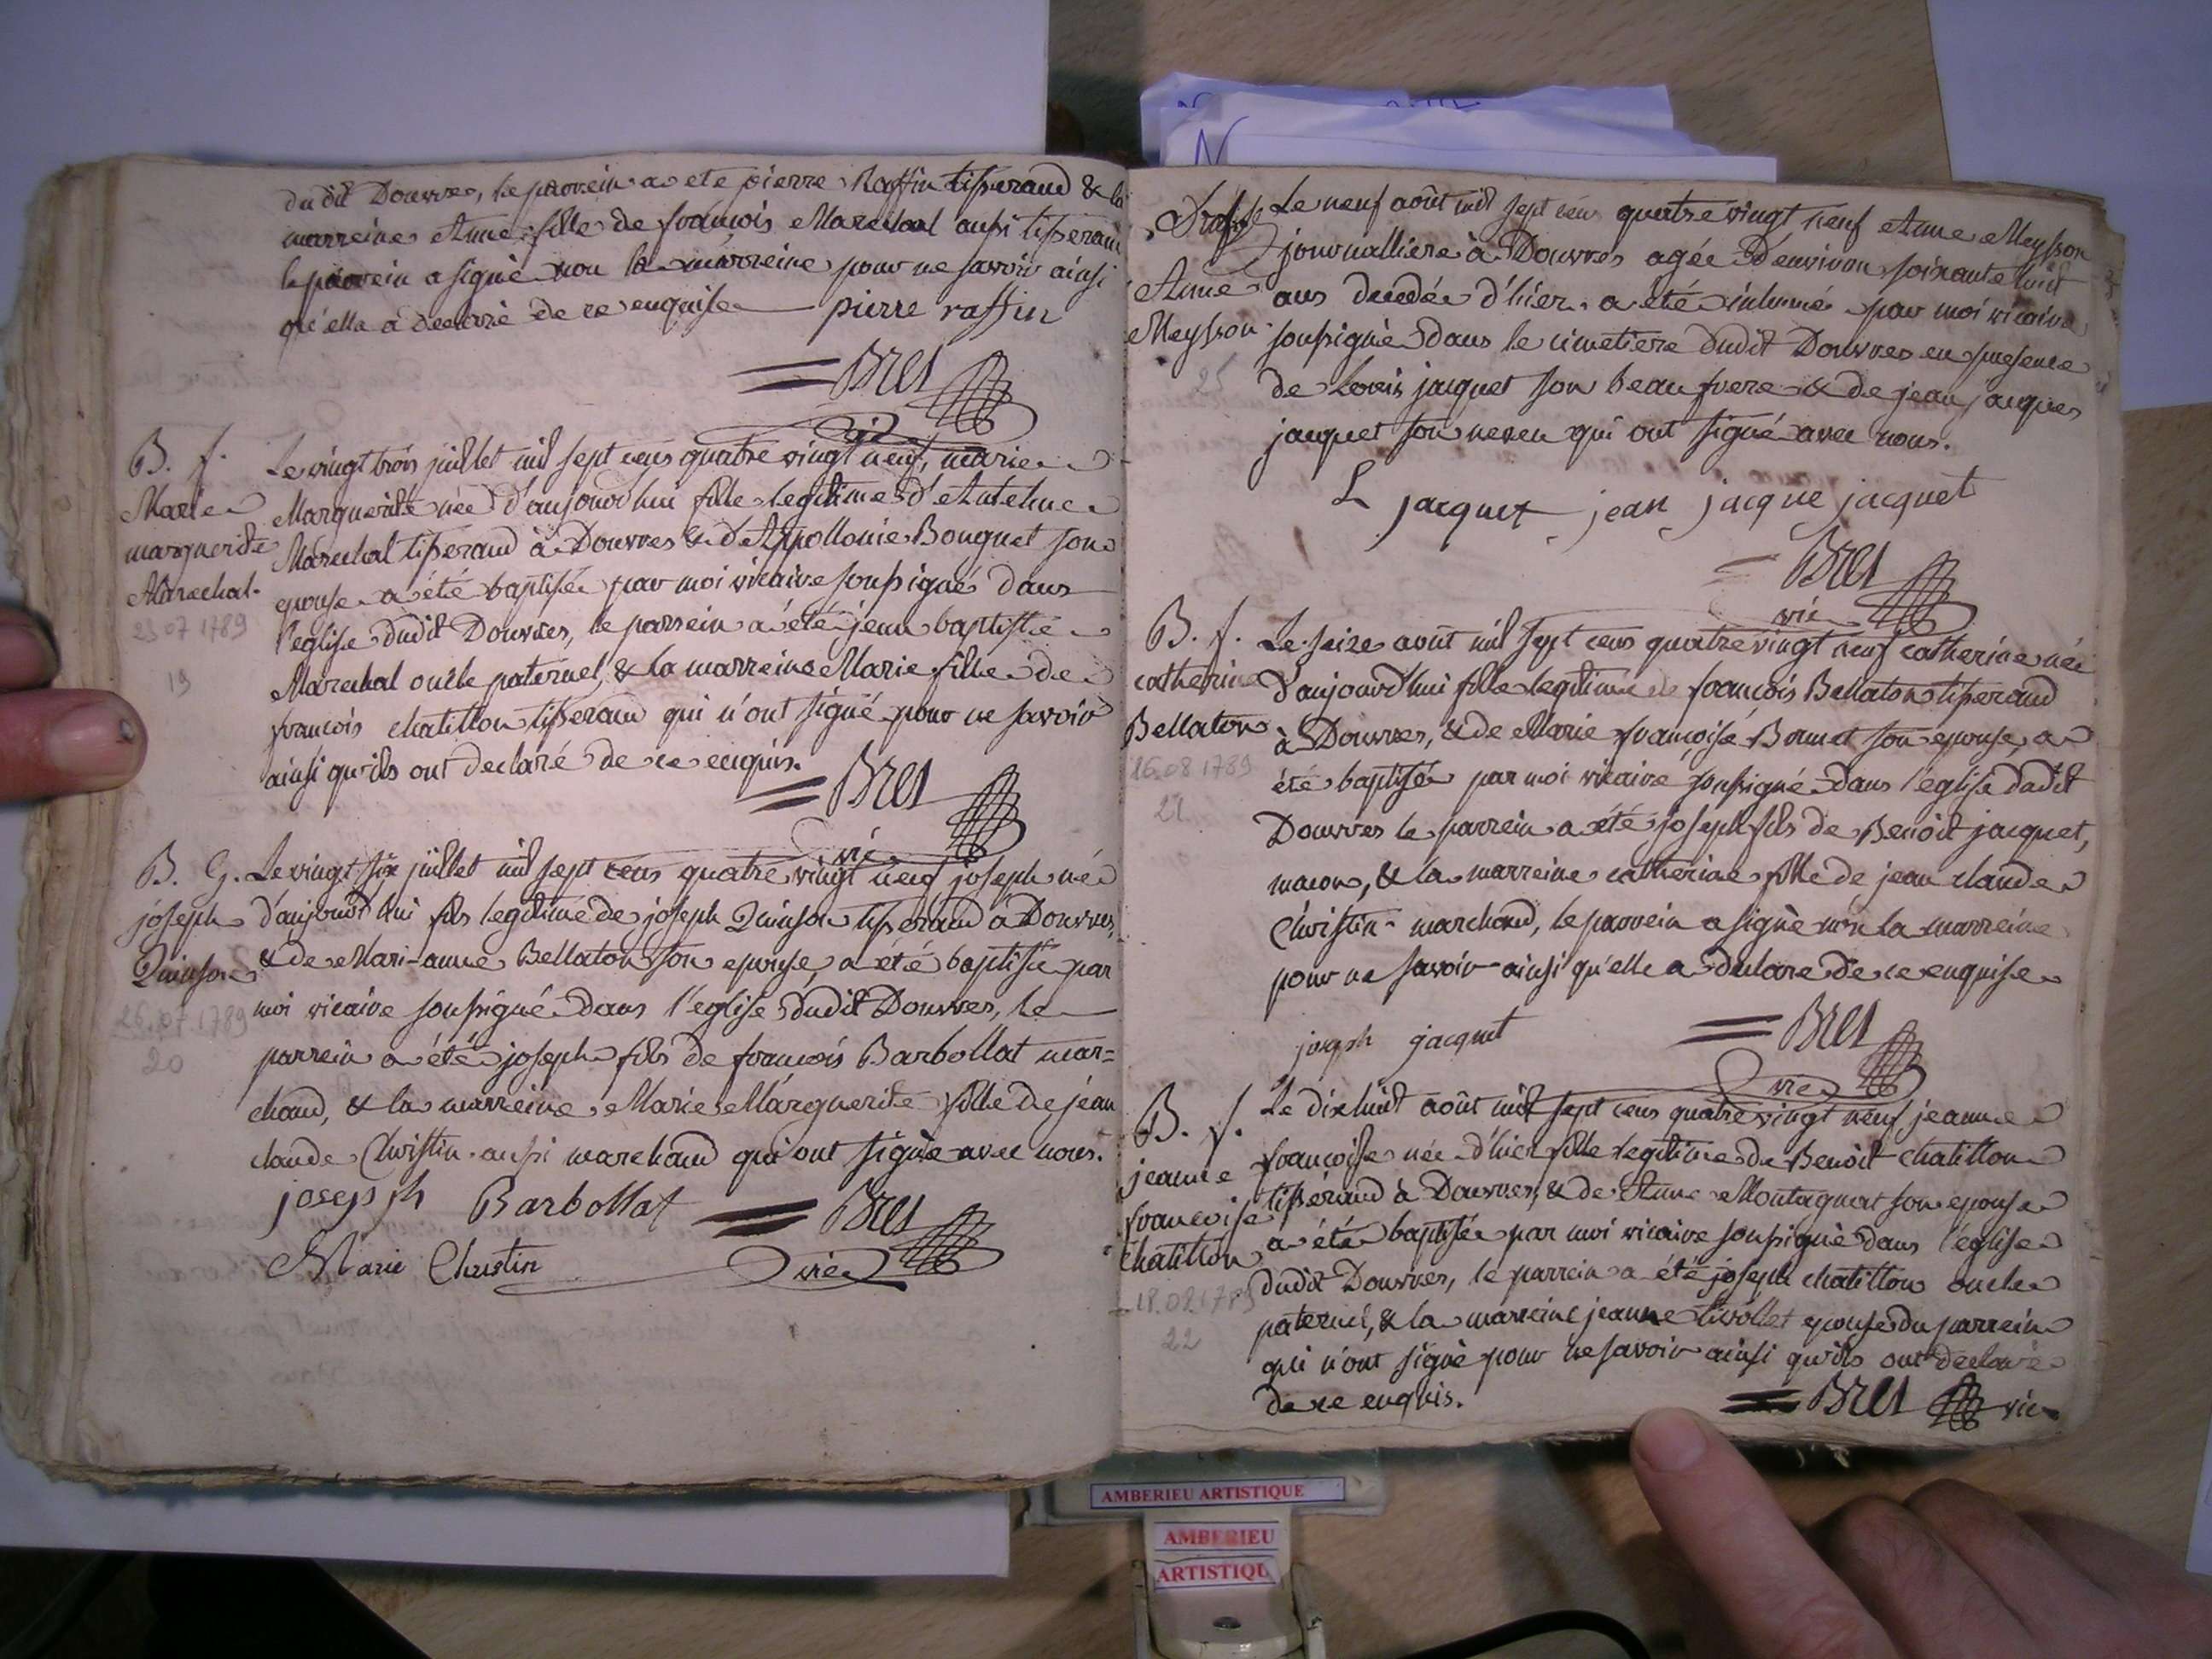 dudit Douvres, le parrein a ete pierre Raffin tisserand & la
marreine Anne fille de françois Marechal aussi tisserand
le parrein a signé non la marreine pour ne savoir ainsi
qu'elle a declaré de ce enquise pierre raffin
= Bret
vic
B. f.
Marie
marguerite
Marechal.
23 07 1789
19
Le vingt trois juillet mil sept cens quatre vingt neuf, marie
Marguerite née d'aujourd'hui fille legitime d'Antelme
Marechal tisserand à Douvres & d'Appollonie Bouquet son
epouse a été baptisée par moi vicaire soussigné dans
l'eglise dudit Douvres, le parrein a été jean baptiste
Marechal oncle paternel, & la marreine Marie fille de
françois chatillon tisserand qui n'ont signé pour ne savoir
ainsi qu'ils ont declaré de ce enquis.
= Bret
vic
B. G.
joseph
Quinson
26.07.1789
20
Le vingt six juillet mil sept cens quatre vingt neuf joseph né
d'aujourd'hui fils legitime de joseph Quinson tisserand à Douvres,
& de Mari-anne Bellaton son epouse, a été baptisé par
moi vicaire soussigné dans l'eglise dudit Douvres, le
parrein a été joseph fils de françois Barbollat mar=
chand, & la marreine Marie Marguerite fille de jean
claude Christin aussi marchand qui ont signé avec nous.
joseph Barbollat = Bret
Marie Christin vic
Anne
Meysson
25
Le neuf août mil sept cens quatre vingt neuf Anne Meysson
journalliere à Douvres agée d'environ soixante huit
ans decedée d'hier a été inhumé par moi vicaire
soussigné dans le cimetiere dudit Douvres en presence
de Louis jacquet son beau frere & de jean jacques
jacquet son neveu qui ont signé avec nous.
L jacquet jean jacque jacquet
= Bret
vic
B. f.
catherine
Bellaton
16.08 1789
21
Le seize août mil sept cens quatre vingt neuf catherine née
d'aujourd'hui fille legitime de françois Bellaton tisserand
à Douvres, & de Marie françoise Bonnet son epouse, a
été baptisée par moi vicaire soussigné dans l'église dudit
Douvres le parrein a été joseph fils de Benoît jacquet,
macon, & la marreine catherine fille de jean claude
Christin marchand, le parrein a signé non la marreine
pour ne savoir ainsi qu'elle a declare de ce enquise
joseph jacquet = Bret
vic
B. f.
jeanne
françoise
chatillon
18.08 1789
22
Le dixhuit août mil sept cens quatre vingt neuf, jeanne
françoise née d'hier fille legitime de Benoît chatillon
tisserand à Douvres, & de Anne Montagnat son epouse
a été baptisée par moi vicaire soussigné dans l'église
dudit Douvres, le parrein a été joseph chatillon oncle
paternel, & la marreine jeanne epouse du parrein
qui n'ont signé pour ne savoir ainsi qu'ils ont declaré
de ce enquis.
= Bret vic
AMBERIEU ARTISTIQUE
AMBERIEU
ARTISTIQU